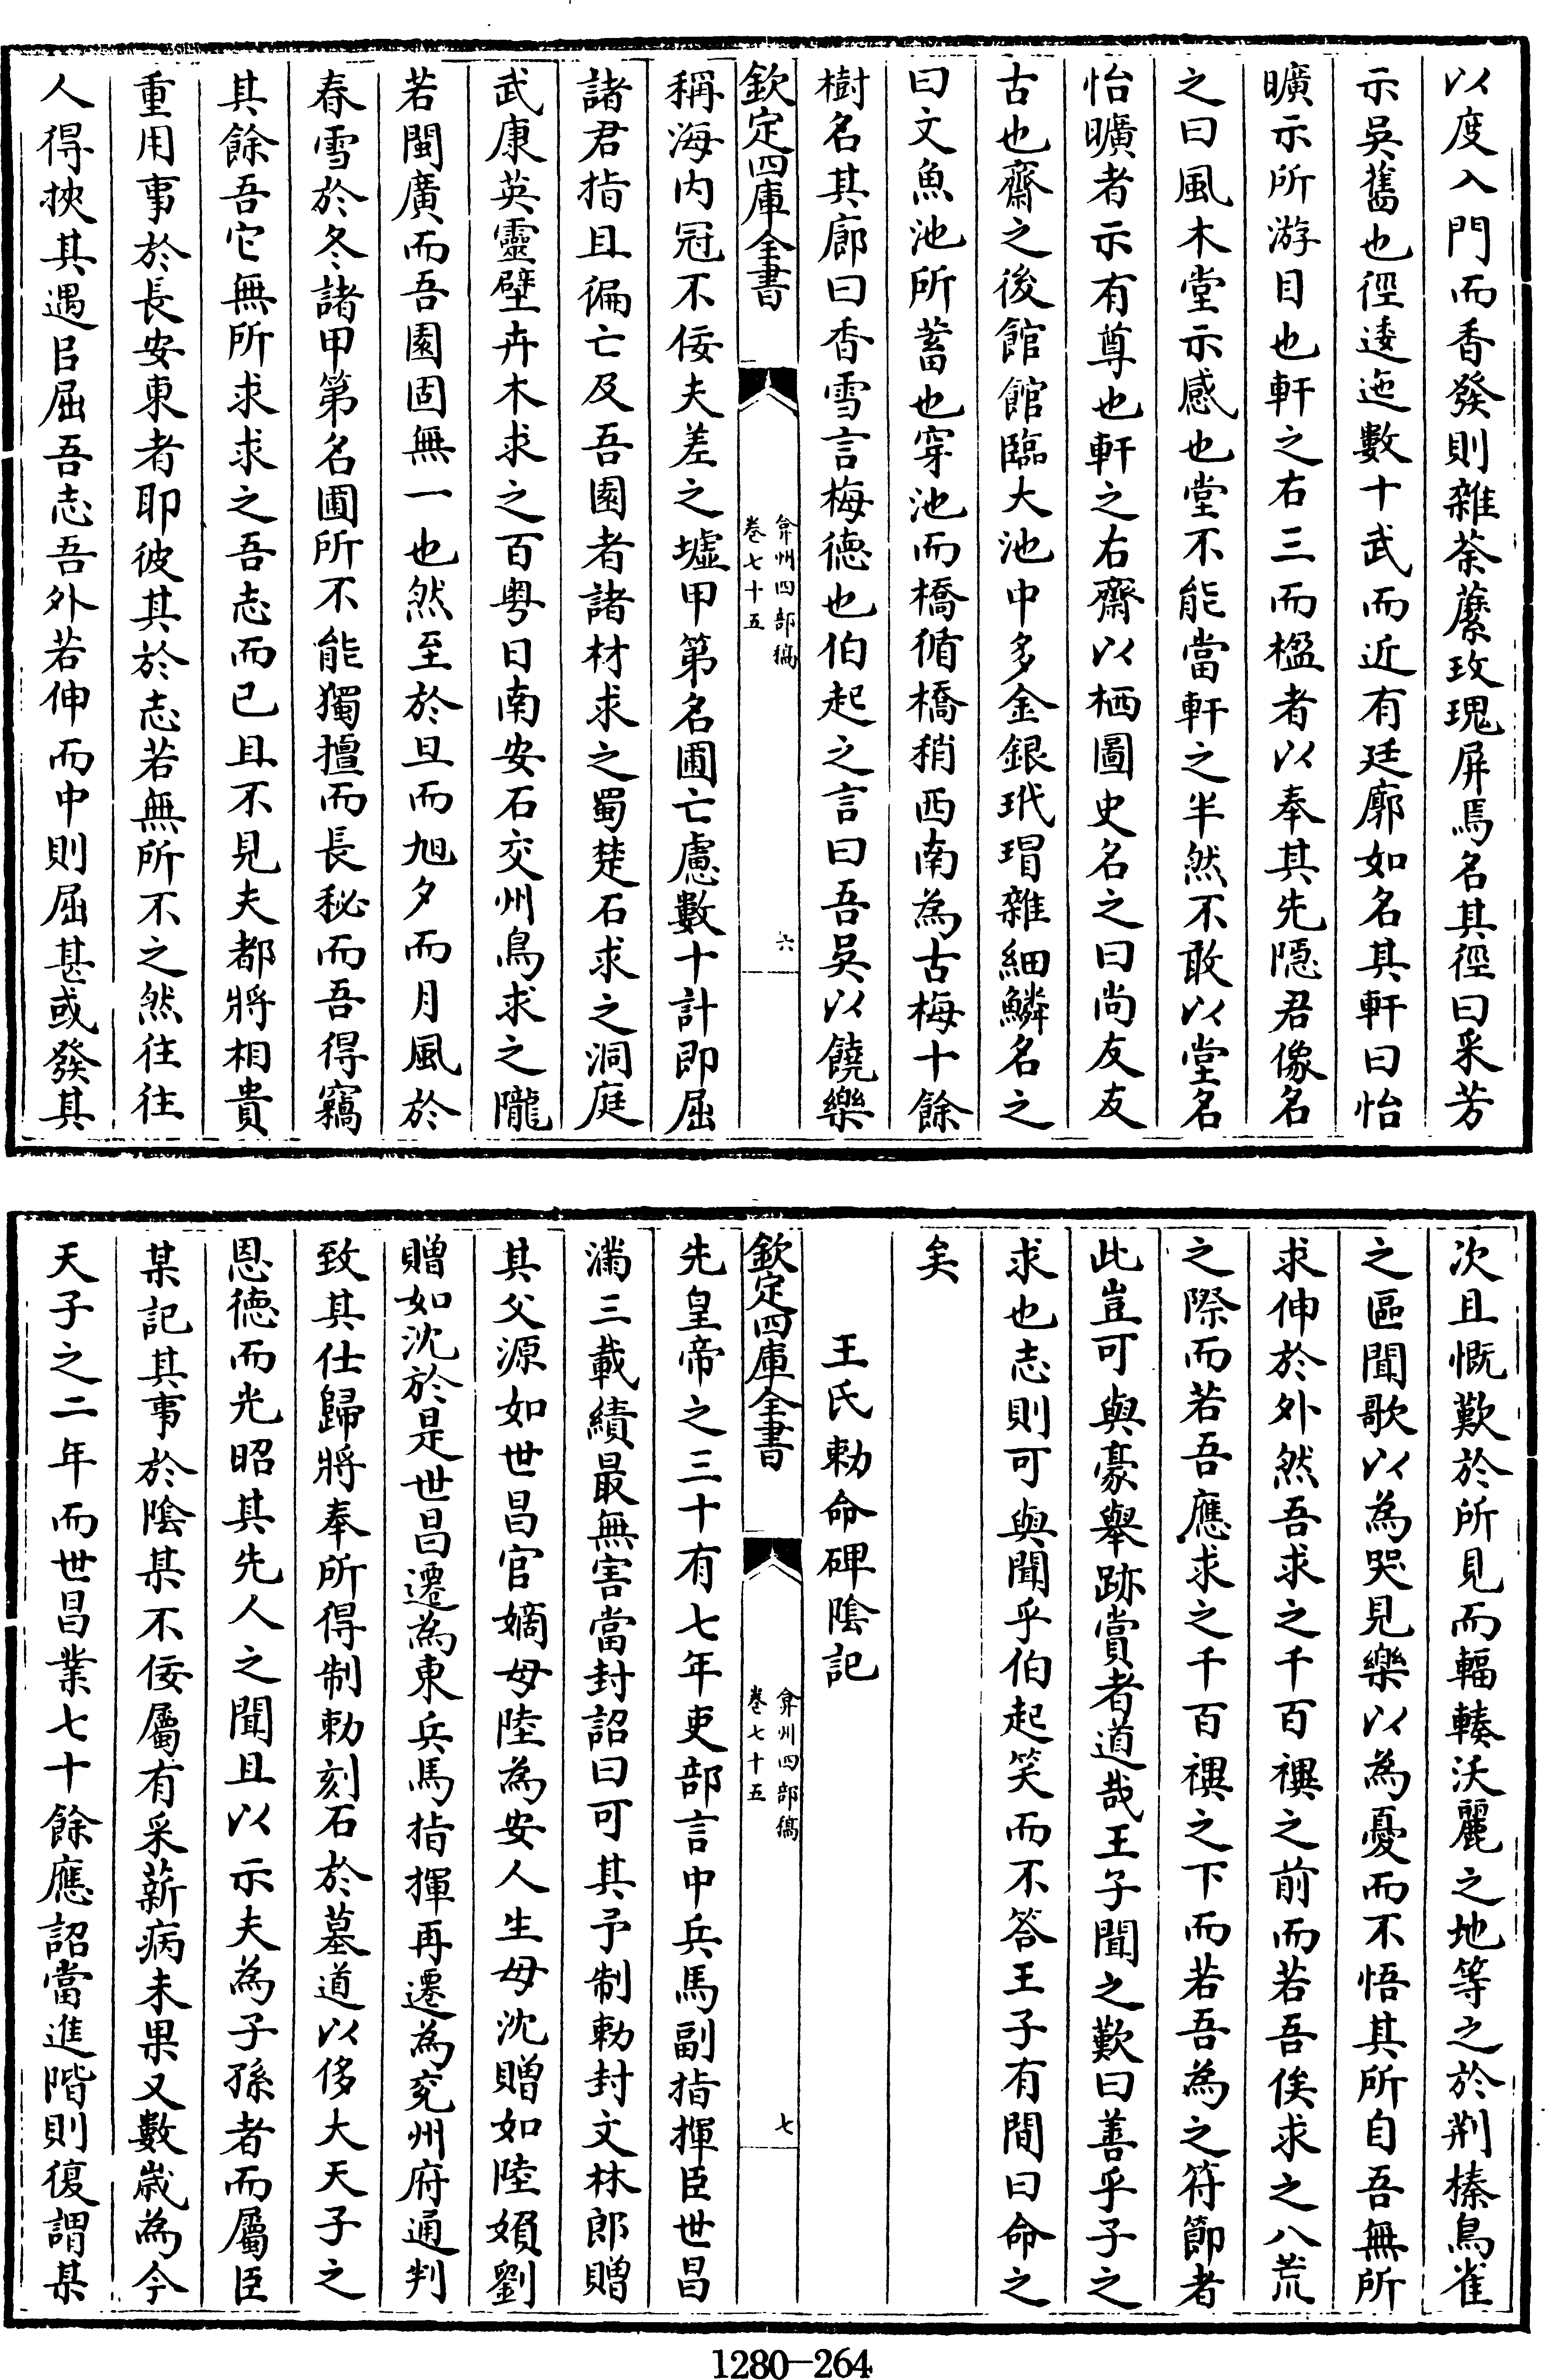 以度入門而香發則雜荼蘼玫瑰屏焉名其徑曰采芳
示吳舊也徑逶迤數十武而近有廷廓如名其軒曰怡
曠示所游目也軒之右三而楹者以奉其先隱君像名
之曰風木堂示感也堂不能當軒之半然不敢以堂名
怡曠者示有尊也軒之右齋以栖圖史名之曰尚友友
古也齋之後館館臨大池中多金銀玳瑁雜細鱗名之
曰文魚池所蓄也穿池而橋循橋稍西南為古梅十餘
樹名其廊曰香雪言梅德也伯起之言曰吾吳以饒樂
欽定四庫全書
弇州四部稿
卷七十五
六
稱海内冠不佞夫差之墟甲第名圃亡慮數十計即屈
諸君指且徧亡及吾園者諸材求之蜀楚石求之洞庭
武康英靈壁卉木求之百粤日南安石交州鳥求之隴
若閩廣而吾園固無一也然至於旦而旭夕而月風於
春雪於冬諸甲第名圃所不能獨擅而長秘而吾得竊
其餘吾它無所求求之吾志而已且不見夫都將相貴
重用事於長安東者耶彼其於志若無所不之然往往
人得挾其遇㠯屈吾志吾外若伸而中則屈甚或發其
次且慨歎於所見而輻輳沃麗之地等之於荆榛鳥雀
之區聞歌以為哭見樂以為憂而不悟其所自吾無所
求伸於外然吾求之千百禩之前而若吾俟求之八荒
之際而若吾應求之千百禩之下而若吾為之符節者
此豈可與豪舉跡賞者道哉王子聞之歎曰善乎子之
求也志則可與聞乎伯起笑而不答王子有間曰命之
矣
王氏勅命碑陰記
欽定四庫全書
弇州四部稿
卷七十五
七
先皇帝之三十有七年吏部言中兵馬副指揮臣世昌
滿三載績最無害當封詔曰可其予制勅封文林郎贈
其父源如世昌官嫡母陸為安人生母沈贈如陸嬪劉
贈如沈於是世昌遷為東兵馬指揮再遷為兖州府通判
致其仕歸將奉所得制勅刻石於墓道以侈大天子之
恩德而光昭其先人之聞且以示夫為子孫者而屬臣
某記其事於陰某不佞屬有采薪病未果又數歲為今
天子之二年而世昌業七十餘應詔當進階則復謂某
1280—264